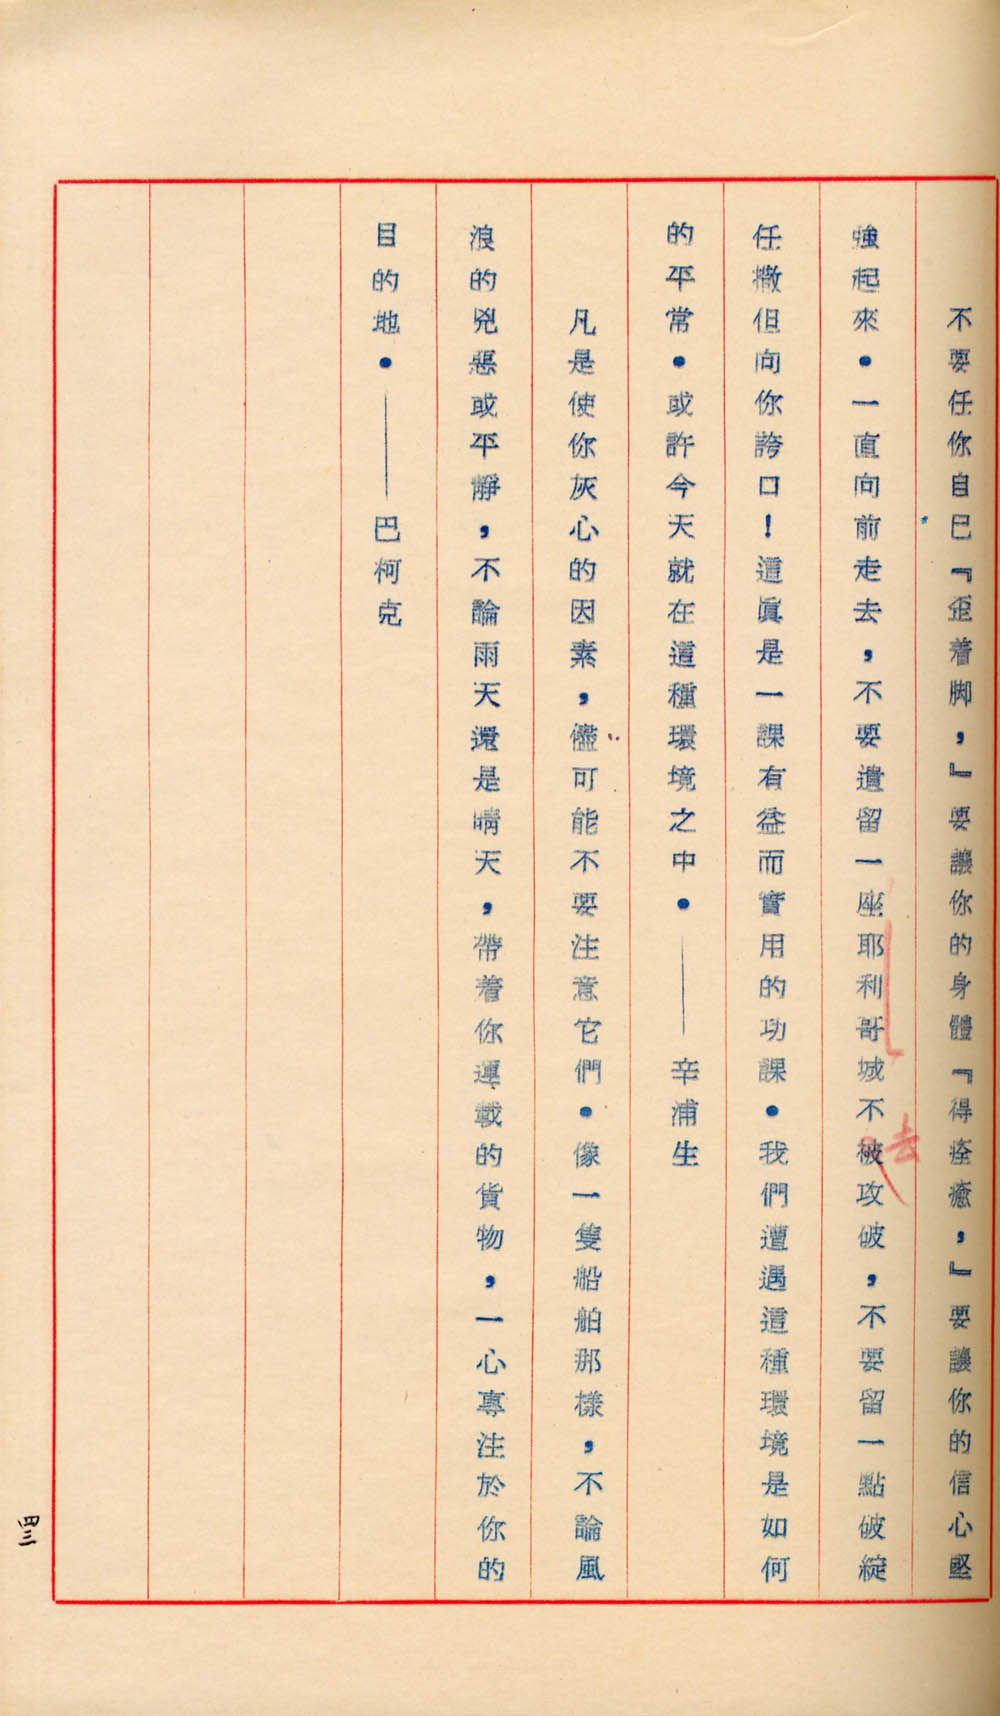 不要任你自己『歪着脚，』要讓你的身體『得痊癒，』要讓你的信心堅
強起來•一直向前走去，不要遺留一座耶利哥城不被攻破，不要留一點破綻
去
任撒但向你誇口！這眞是一課有益而實用的功課•我們遭遇這種環境是如何
的平常•或許今天就在這種環境之中•——辛浦生
凡是使你灰心的因素，儘可能不要注意它們•像一隻船舶那樣，不論風
浪的兇惡或平靜，不論雨天還是晴天，帶着你運載的貨物，一心專注於你的
目的地•——巴柯克
四三